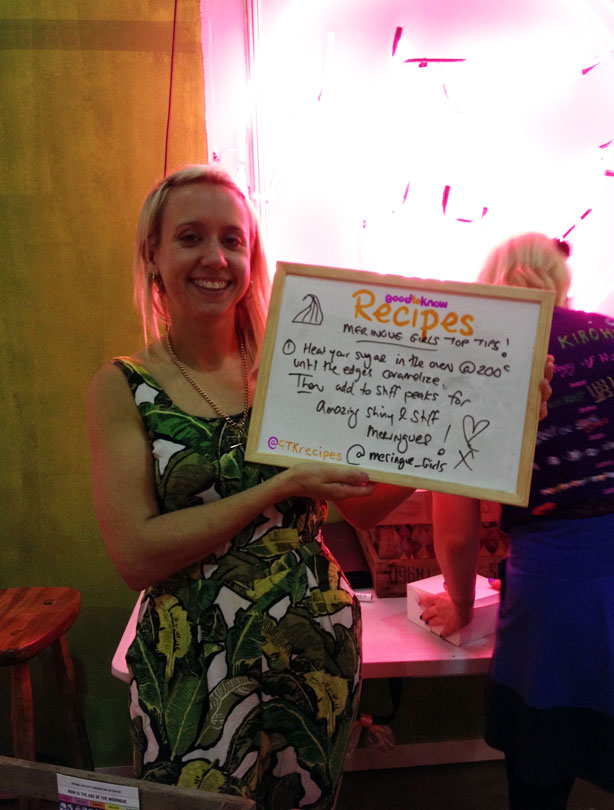 goodtoknow
Recipes
MERINGUE GIRLS TOP TIPS!
① Heat your sugar in the oven @ 200°c
until the edges caramelize,
Then add to stiff peaks for
amazing shiny & stiff
Meringues!
@GTKrecipes @meringue_girls X
KIROV
NOW IS THE AGE OF THE MERINGUE